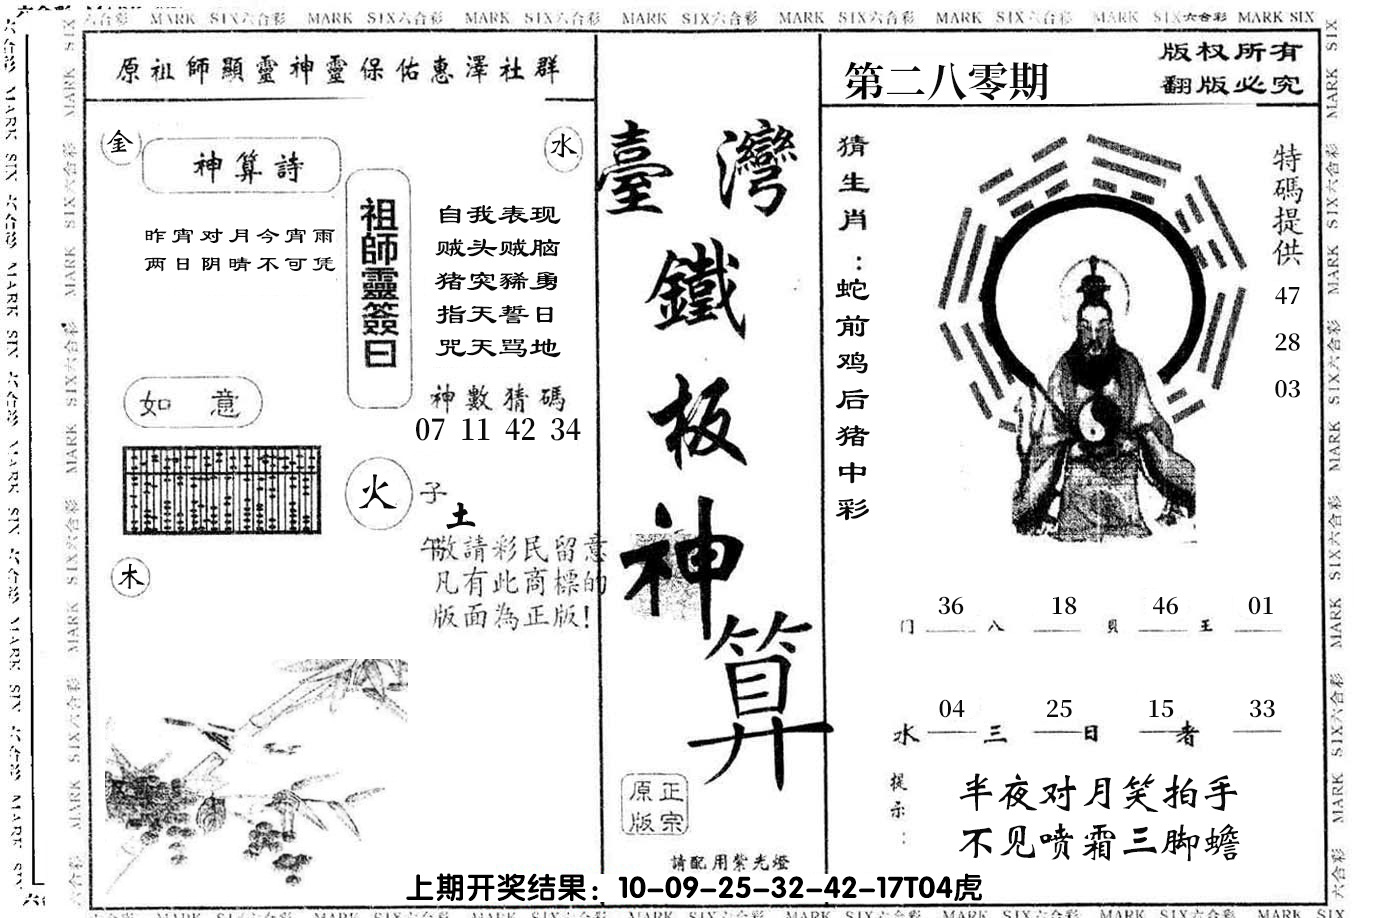 六合彩 MARK SIX六合彩 MARK SIX六合彩 MARK SIX六合彩 MARK SIX六合彩 MARK SIX六合彩 MARK SIX六合彩 MARK SIX六合彩 MARK SIX
原祖師顯靈神靈保佑惠澤社群
金
水
神算詩
昨宵对月今宵雨
两日阴晴不可凭
祖師靈簽曰
自我表现
贼头贼脑
猪突豨勇
指天誓日
咒天骂地
神數猜碼
07 11 42 34
如 意
火
子
土
午
木
敬請彩民留意
凡有此商標的
版面為正版!
臺灣
鐵
板
神
算
正宗
原版
請配用紫光燈
第二八零期
版权所有
翻版必究
猜生肖:蛇前鸡后猪中彩
特碼提供
47
28
03
门 36 八 18 貝 46 王 01
水 04 三 25 日 15 者 33
提示:
半夜对月笑拍手
不见喷霜三脚蟾
上期开奖结果：10-09-25-32-42-17T04虎